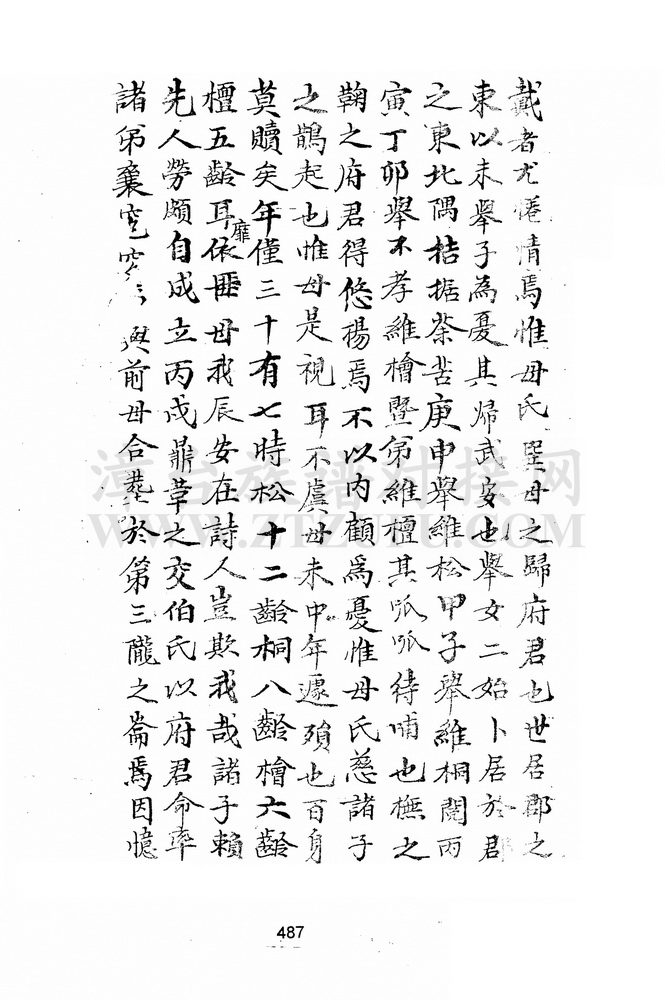 戴者尤惓情焉惟母氏塁母之歸府君也世居郡之
東以未舉子為憂其歸武安也舉女二始卜居於郡
之東北隅拮据荼苦庚申舉維松甲子舉維桐閱丙
寅丁卯舉不孝維檜暨弟維檀其呱呱待哺也撫之
鞠之府君得悠揚焉不以內顧爲憂惟母氏慈諸子
之鵲起也惟母是視耳不虞母未中年遽殞也百身
莫贖矣年僅三十有七時松十二齡桐八齡檜六齡
檀五齡耳靡依匪母我辰安在詩人豈欺我哉諸子賴
先人勞頗自成立丙戌鼎革之交伯氏以府君命率
諸弟襄窀穸與前母合葬於第三隴之崙焉因憶
漳台族譜對接網
WWW.ZTZUPU.COM
487